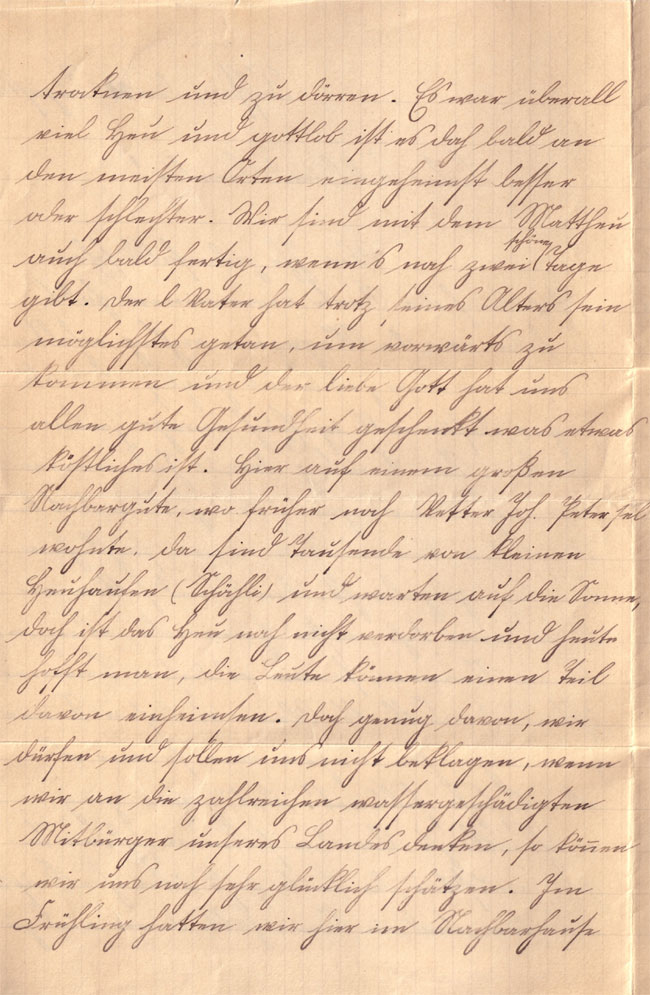 trocknen und zu dörren. Es war überall
viel Heu und gottlob ist es doch bald an
den meisten Orten eingeheimst besser
oder schlechter. Wir sind mit dem Mattheu
schöne
auch bald fertig, wenn's noch zwei Tage
gibt. Der l Vater hat trotz seines Alters sein
möglichstes getan, um vorwärts zu
kommen und der liebe Gott hat uns
allen gute Gesundheit geschenkt was etwas
köstliches ist. Hier auf einem großen
Nachbargute, wo früher noch Vetter Joh. Peter sel
wohnte. da sind Tausende von kleinen
Heuhaufen (Schöchli) und warten auf die Sonne,
doch ist das Heu noch nicht verdorben und heute
hofft man, die Leute können einen Teil
davon einheimsen. Doch genug davon, wir
dürfen und sollen uns nicht beklagen, wenn
wir an die zahlreichen wassergeschädigten
Mitbürger unseres Landes denken, so können
wir uns noch sehr glücklich schätzen. Im
Frühling hatten wir hier im Nachbarhause